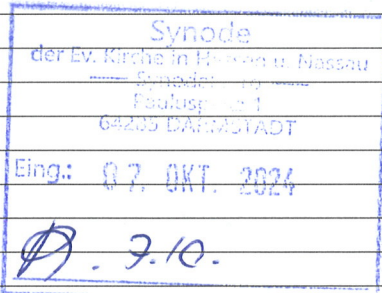 Synode
der Ev. Kirche in Hessen u. Nassau
Paulusplatz 1
64285 DARMSTADT
Eing.: 07. OKT. 2024
7.10.